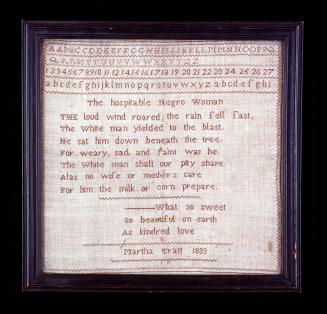 AABBCCDDEEFFGGHHIIJJKKLLMMNNOOPPQ
QRRSSTTUUVVWWXXYYZZ
1 2 3 4 5 6 7 8 9 10 11 12 13 14 15 16 17 18 19 20 21 22 23 24 25 26 27
abcdefghijklmnopqrstuvwxyz abcdefghi
The hospitable Negro Woman
THE loud wind roared, the rain fell fast,
The White man yielded to the blast.
He sat him down beneath the tree.
For weary, sad, and faint was he.
The White man shall our pity share
Alas no wife or mothers care
For him the milk or corn prepare.
What so sweet
So beautiful on earth
As kindred love
Martha Trall 1833